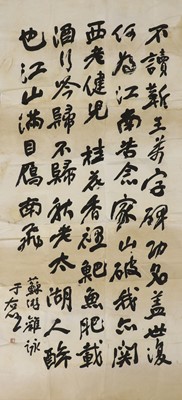 不讀蘄王萬字碑功名蓋世復
何為江南苦念家山破我亦關
西老健兒 桂花香裡䰾魚肥載
酒行吟歸不歸能老太湖人醉
也江山滿目雁南飛
蘇游雜詠
于右任